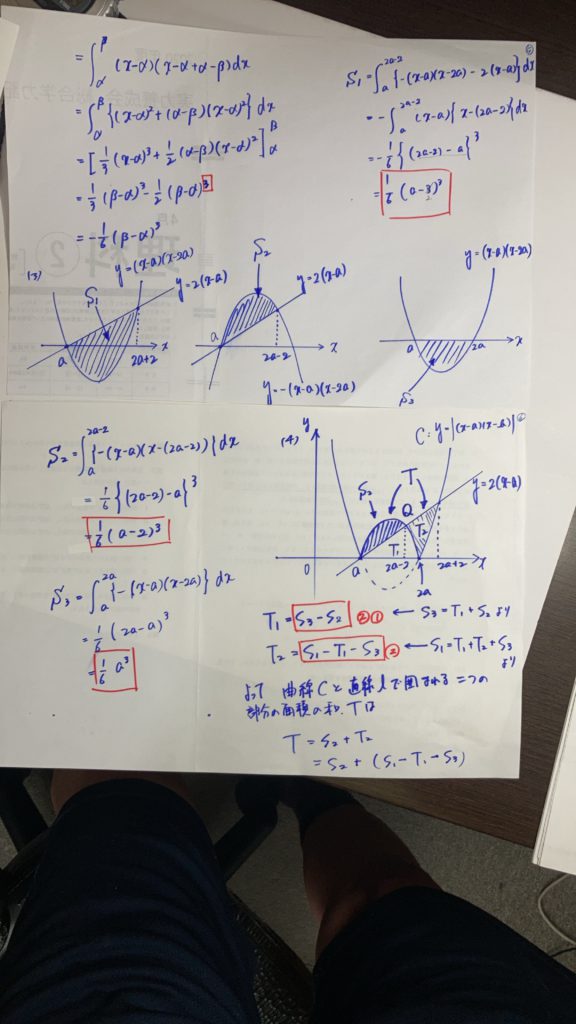 = ∫_α^β (x-α)(x-α+α-β)dx
= ∫_α^β {(x-α)²+(α-β)(x-α)²} dx
= [1/3 (x-α)³ + 1/2 (α-β)(x-α)²]_α^β
= 1/3 (β-α)³ - 1/2 (β-α)³
= -1/6 (β-α)³
S₁ = ∫_a^{2a-2} {-(x-a)(x-2a) - 2(x-a)} dx
= -∫_a^{2a-2} (x-a){x-(2a-2)} dx
= -1/6 {(2a-2)-a}³
= 1/6 (a-3)³
理科②
(3)
y=(x-a)(x-2a)
S₁
y=2(x-a)
a
2a+2
x
S₂
y=2(x-a)
a
2a-2
x
y=-(x-a)(x-2a)
y=(x-a)(x-2a)
a
2a
x
S₃
S₂ = ∫_a^{2a-2} {-(x-a)(x-(2a-2))} dx
= 1/6 {(2a-2)-a}³
= 1/6 (a-2)³
S₃ = ∫_a^{2a} {-(x-a)(x-2a)} dx
= 1/6 (2a-a)³
= 1/6 a³
(4)
y
C: y=|(x-a)(x-2a)|
y=2(x-a)
S₂
T
Q
T₁
T₂
0
a
2a-2
2a
2a+2
x
T₁ = S₃-S₂ ②① ← S₃=T₁+S₂ より
T₂ = S₁-T₁-S₃ ② ← S₁=T₁+T₂+S₃
より
よって 曲線Cと直線lで囲まれる二つの
部分の面積の和、Tは
T = S₂+T₂
= S₂+(S₁-T₁-S₃)